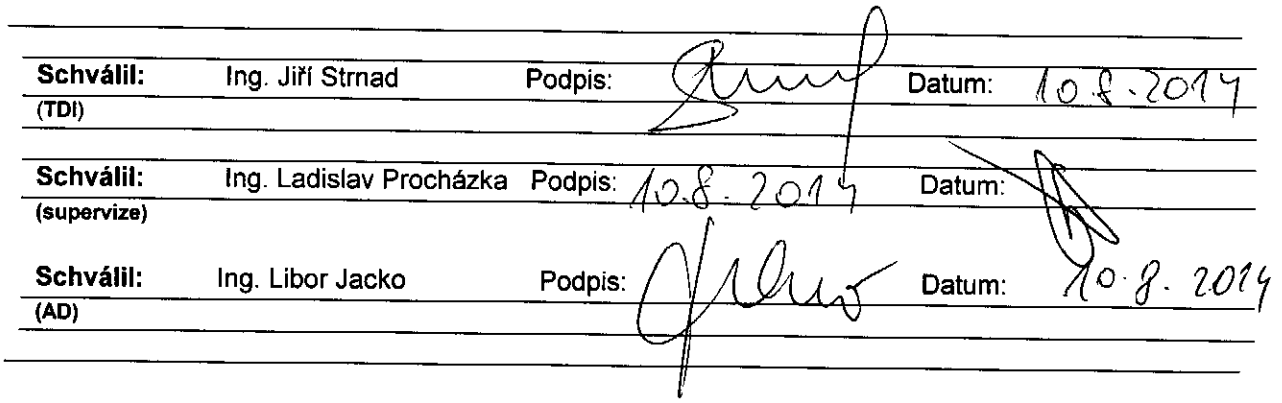 Schválil: Ing. Jiří Strnad Podpis: Datum: 10.8.2014
(TDI)
Schválil: Ing. Ladislav Procházka Podpis: 10.8.2014 Datum:
(supervize)
Schválil: Ing. Libor Jacko Podpis: Datum: 10.8.2014
(AD)